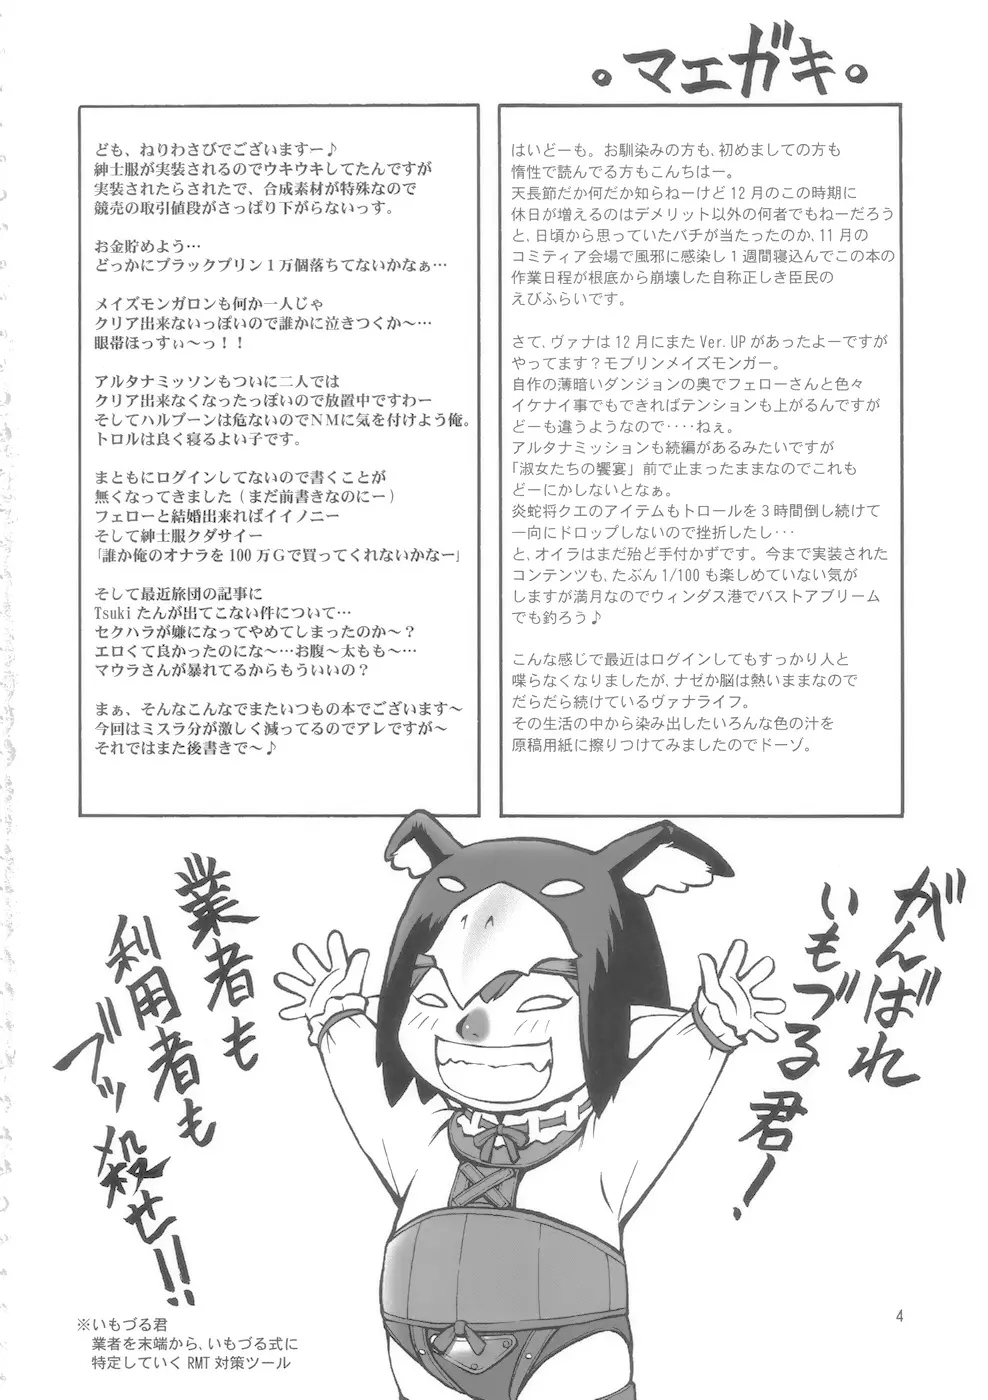 。マエガキ。
はいどーも。お馴染みの方も、初めましての方も
惰性で読んでる方もこんちはー。
天長節だか何だか知らねーけど12月のこの時期に
休日が増えるのはデメリット以外の何者でもねーだろう
と、日頃から思っていたバチが当たったのか、11月の
コミティア会場で風邪に感染し1週間寝込んでこの本の
作業日程が根底から崩壊した自称正しき臣民の
えびふらいです。
さて、ヴァナは12月にまたVer.UPがあったよーですが
やってます？モブリンメイズモンガー。
自作の薄暗いダンジョンの奥でフェローさんと色々
イケナイ事でもできればテンションも上がるんですが
どーも違うようなので‥‥ねぇ。
アルタナミッションも続編があるみたいですが
「淑女たちの饗宴」前で止まったままなのでこれも
どーにかしないとなぁ。
炎蛇将クエのアイテムもトロールを3時間倒し続けて
一向にドロップしないので挫折したし‥‥
と、オイラはまだ殆ど手付かずです。今まで実装された
コンテンツも、たぶん1/100も楽しめていない気が
しますが満月なのでウィンダス港でバストアブリーム
でも釣ろう♪
こんな感じで最近はログインしてもすっかり人と
喋らなくなりましたが、ナゼか脳は熱いままなので
だらだら続けているヴァナライフ。
その生活の中から染み出したいろんな色の汁を
原稿用紙に擦りつけてみましたのでドーゾ。
ども、ねりわさびでございますー♪
紳士服が実装されるのでウキウキしてたんですが
実装されたらされたで、合成素材が特殊なので
競売の取引値段がさっぱり下がらないっす。
お金貯めよう…
どっかにブラックプリン１万個落ちてないかなぁ…
メイズモンガロンも何か一人じゃ
クリア出来ないっぽいので誰かに泣きつくか～…
眼帯ほっすぃ～っ！！
アルタナミッソンもついに二人では
クリア出来なくなったっぽいので放置中ですわー
そしてハルブーンは危ないのでＮＭに気を付けよう俺。
トロルは良く寝るよい子です。
まともにログインしてないので書くことが
無くなってきました（まだ前書きなのにー）
フェローと結婚出来ればイイノニー
そして紳士服クダサイー
「誰か俺のオナラを100万Gで買ってくれないかなー」
そして最近旅団の記事に
Tsukiたんが出てこない件について…
セクハラが嫌になってやめてしまったのか～？
エロくて良かったのにな～…お腹～太もも～…
マウラさんが暴れてるからもういいの？
まぁ、そんなこんなでまたいつもの本でございます～
今回はミスラ分が激しく減ってるのでアレですが～
それではまた後書きで～♪
がんばれ
いもづる君！
業者も
利用者も
ブッ殺せ！！
※いもづる君
業者を末端から、いもづる式に
特定していくRMT対策ツール
4